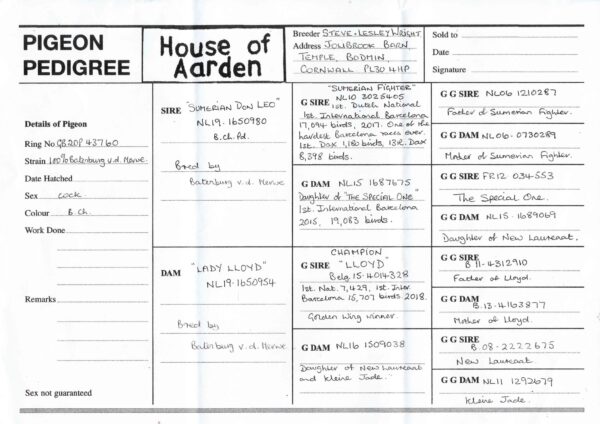 PIGEON
PEDIGREE
House of
Aarden
Breeder STEVE + LESLEY WRIGHT
Address JOLLBROOK BARN,
TEMPLE, BODMIN,
CORNWALL PL30 4HP
Sold to
Date
Signature
Details of Pigeon
Ring No GB20P 43760
Strain 100% Batenburg v.d. Merwe
Date Hatched
Sex cock
Colour B.Ch.
Work Done
Remarks
Sex not guaranteed
SIRE "SUMERIAN DON LEO"
NL19-1650980
B.Ch.Pd.
Bred by
Batenburg v.d. Merwe
DAM "LADY LLOYD"
NL19-1650954
Bred by
Batenburg v.d. Merwe
"SUMERIAN FIGHTER"
G SIRE NL10 3025405
1st. Dutch National
1st. International Barcelona
17,094 birds, 2017. One of the
hardest Barcelona races ever.
1st. Dax 1,180 birds, 13th. Dax
8,398 birds.
G DAM NL15 1687675
Daughter of "THE SPECIAL ONE"
1st. International Barcelona
2015, 19,083 birds.
CHAMPION
G SIRE "LLOYD"
Belg. 15-4014328
1st. Nat. 7,429, 1st. Inter
Barcelona 15,707 birds 2018.
Golden Wing winner.
G DAM NL16 1509038
Daughter of New Laureaat
and Kleine Jade.
G G SIRE NL06 1210287
Father of Sumerian Fighter.
G G DAM NL06-0730289
Mother of Sumerian Fighter.
G G SIRE FR12 034553
The Special One.
G G DAM NL15-1689069
Daughter of New Laureaat.
G G SIRE B 11-4312910
Father of Lloyd.
G G DAM B.13-4163877
Mother of Lloyd.
G G SIRE B.08-2222675
New Laureaat
G G DAM NL11 1292679
Kleine Jade.